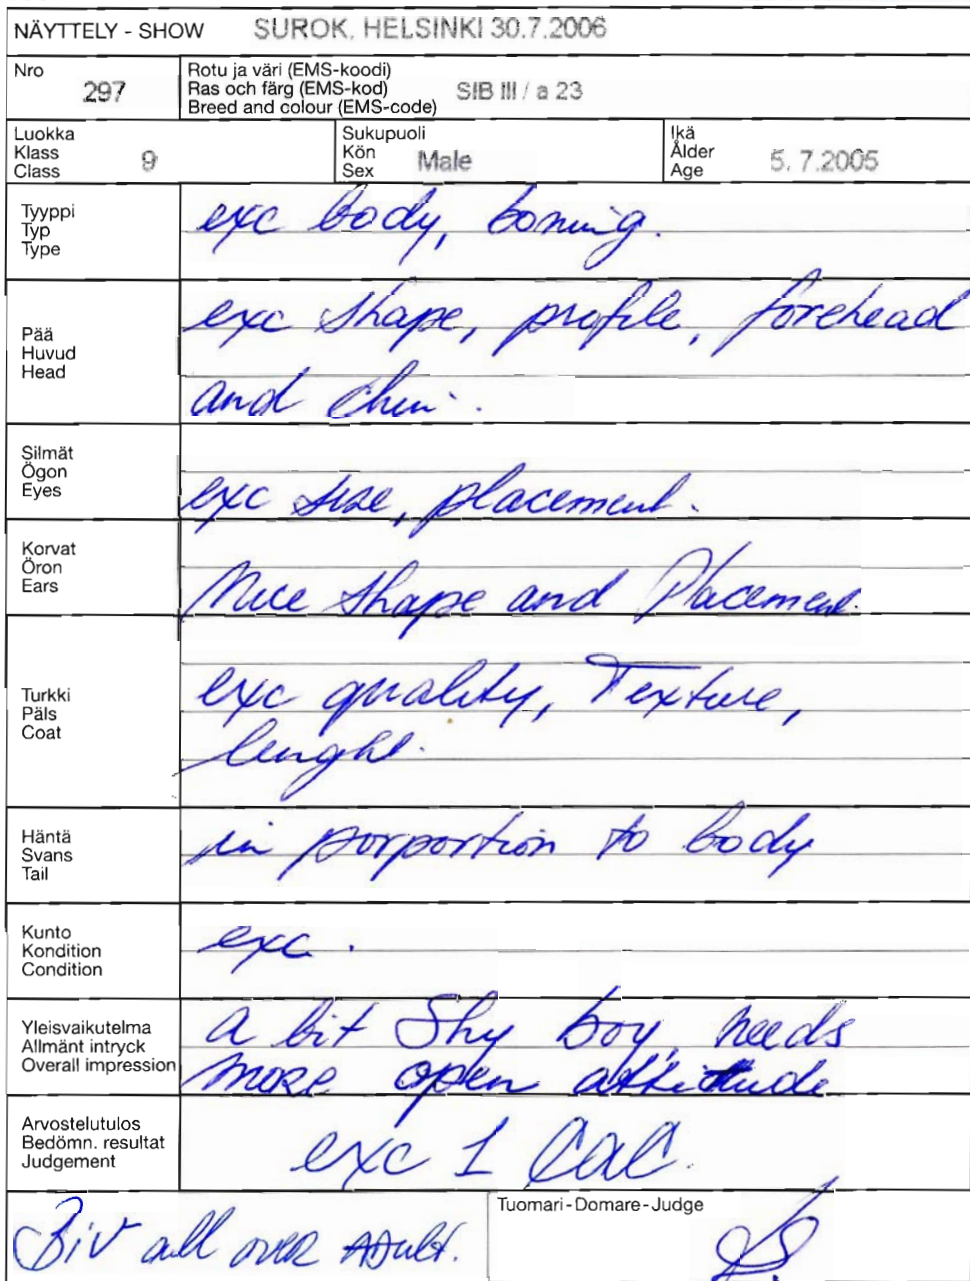 NÄYTTELY - SHOW SUROK, HELSINKI 30.7.2006
Nro 297
Rotu ja väri (EMS-koodi)
Ras och färg (EMS-kod)
Breed and colour (EMS-code) SIB III / a 23
Luokka
Klass
Class 9
Sukupuoli
Kön
Sex Male
Ikä
Ålder
Age 5.7.2005
Tyyppi
Typ
Type
exc body, boning.
Pää
Huvud
Head
exc shape, profile, forehead
and chin.
Silmät
Ögon
Eyes
exc size, placement.
Korvat
Öron
Ears
Nice shape and Placement.
Turkki
Päls
Coat
exc quality, Texture,
lenght.
Häntä
Svans
Tail
in porportion to body
Kunto
Kondition
Condition
exc.
Yleisvaikutelma
Allmänt intryck
Overall impression
a bit Shy boy, needs
more open attitude
Arvostelutulos
Bedömn. resultat
Judgement
exc 1 CAC.
BiV all over ADult.
Tuomari - Domare - Judge